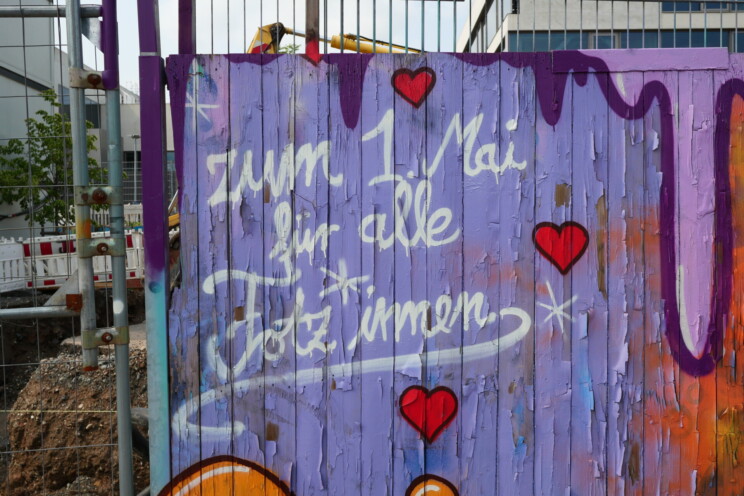 zum 1. Mai
für alle
Fotz*innen.